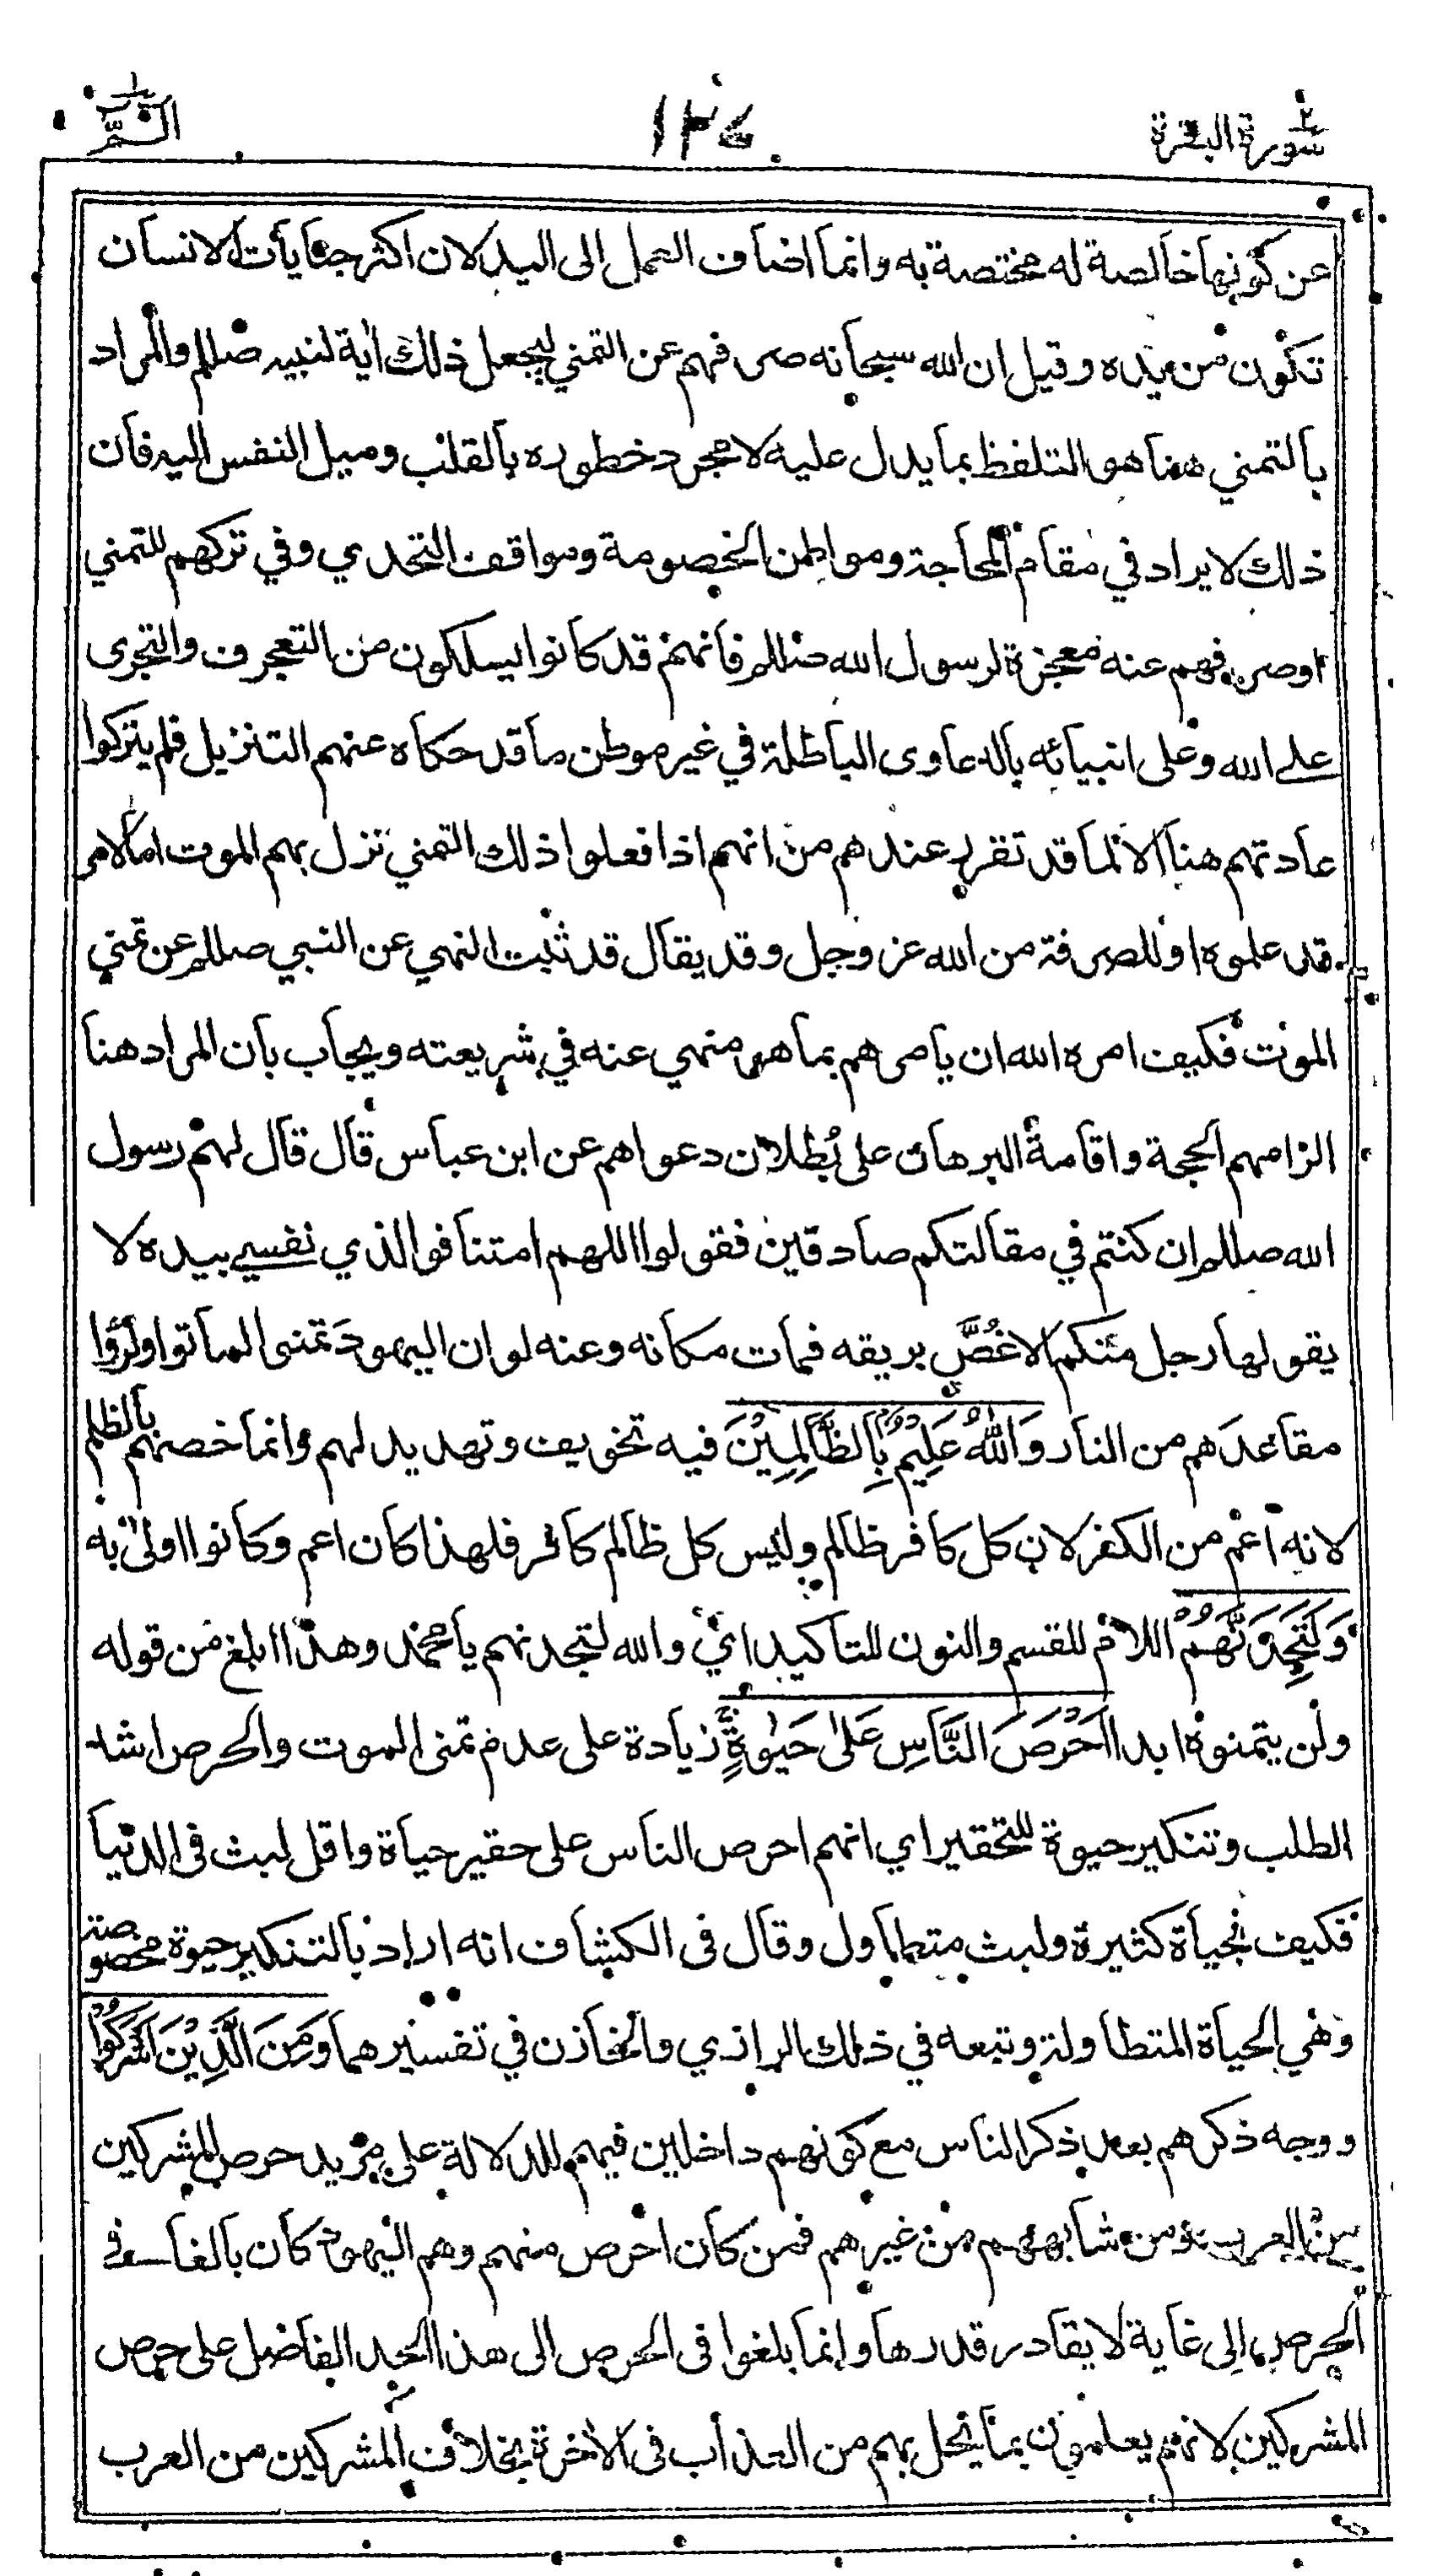 سورة البقرة ٢
١٣٤
الم ١
عن كونها خالصة له مختصة به وانما اضاف العمل الى اليد لان اكثر جنايات الانسان
تكون من يده وقيل ان الله سبحانه صرفهم عن التمني ليجعل ذلك اية لنبيه صللم والمراد
بالتمني هنا هو التلفظ بما يدل عليه لا مجرد خطوره بالقلب وميل النفس اليه فان
ذلك لا يراد في مقام المحاجة ومواطن الخصومة ومواقف التحدي وفي تركهم للتمني
او صرفهم عنه معجزة لرسول الله صللم فانهم قد كانوا يسلكون من التعجرف والتجرى
على الله وعلى انبيائه بالدعاوى الباطلة في غير موطن ما قد حكاه عنهم التنزيل فلم يتركوا
عادتهم هنا الا لما قد تقرر عندهم من انهم اذا فعلوا ذلك التمني نزل بهم الموت اما لامر
قد علموه او للصرفة من الله عز وجل وقد يقال قد ثبت النهي عن النبي صللم عن تمني
الموت فكيف امره الله ان يامرهم بما هو منهي عنه في شريعته ويجاب بان المراد هنا
الزامهم الحجة واقامة البرهان على بُطلان دعواهم عن ابن عباس قال قال لهم رسول
الله صللم ان كنتم في مقالتكم صادقين فقولوا اللهم امتنا فوالذي نفسي بيده لا
يقولها رجل منكم الا غُصَّ بريقه فمات مكانه وعنه لو ان اليهود تمنى الماتوا ولرؤا
مقاعدهم من النار وَاللّٰهُ عَلِيْمٌ بِالظَّالِمِيْنَ فيه تخويف وتهديد لهم وانما خصهم بالظلم
لانه اعم من الكفر لان كل كافر ظالم وليس كل ظالم كافر فلهذا كان اعم وكانوا اولى به
وَلَتَجِدَنَّهُمْ اللام للقسم والنون للتاكيد اي والله لتجدنهم يا محمد وهذا ابلغ من قوله
ولن يتمنوه ابدا اَحْرَصَ النَّاسِ عَلٰى حَيٰوةٍ زيادة على عدم تمنى الموت والحرص اشد
الطلب وتنكير حيوة للتحقير اي انهم احرص الناس على حقير حياة واقل لبث فى الدنيا
فكيف بحياة كثيرة ولبث متطاول وقال فى الكشاف انه اراد بالتنكير حيوة مخصوصة
وهي الحياة المتطاولة وتبعه في ذلك الرازي والخازن في تفسيرهما وَمِنَ الَّذِيْنَ اَشْرَكُوْا
ووجه ذكرهم بعد ذكر الناس مع كونهم داخلين فيهم للدلالة على مزيد حرص المشركين
من العرب ومن شابههم من غيرهم فمن كان احرص منهم وهم اليهود كان بالغا فى
الحرص الى غاية لا يقادر قدرها وانما بلغوا فى الحرص الى هذا الحد الفاضل على حرص
المشركين لانهم يعلمون بما يحل بهم من العذاب فى الاخرة بخلاف المشركين من العرب